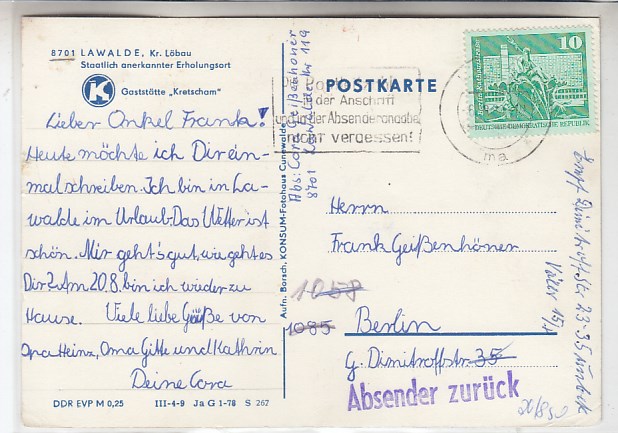 8701 LAWALDE, Kr. Löbau
Staatlich anerkannter Erholungsort
K
Gaststätte „Kretscham"
Lieber Onkel Frank!
Heute möchte ich Dir ein-
mal schreiben. Ich bin in La-
walde im Urlaub. Das Wetter ist
schön. Mir geht's gut, wie geht es
Dir? Am 20.8. bin ich wieder zu
Hause. Viele liebe Grüße von
Opa Heinz, Oma Gitte und Kathrin
Deine Cora
DDR EVP M 0,25 III-4-9 Ja G 1-78 S 267
Aufn. Borsch, KONSUM-Fotohaus Cunewalde
Abs: Cora Geißenhöner
8701 Lawalde Nr 119
POSTKARTE
in der Anschrift
und in der Absenderangabe
nicht vergessen!
10
DEUTSCHE DEMOKRATISCHE REPUBLIK
ma
Herrn
Frank Geißenhöner
1058
1085 Berlin
G. Dimitroffstr. 35
Absender zurück
Empf. Dimitroffstr. 23-35 unbek